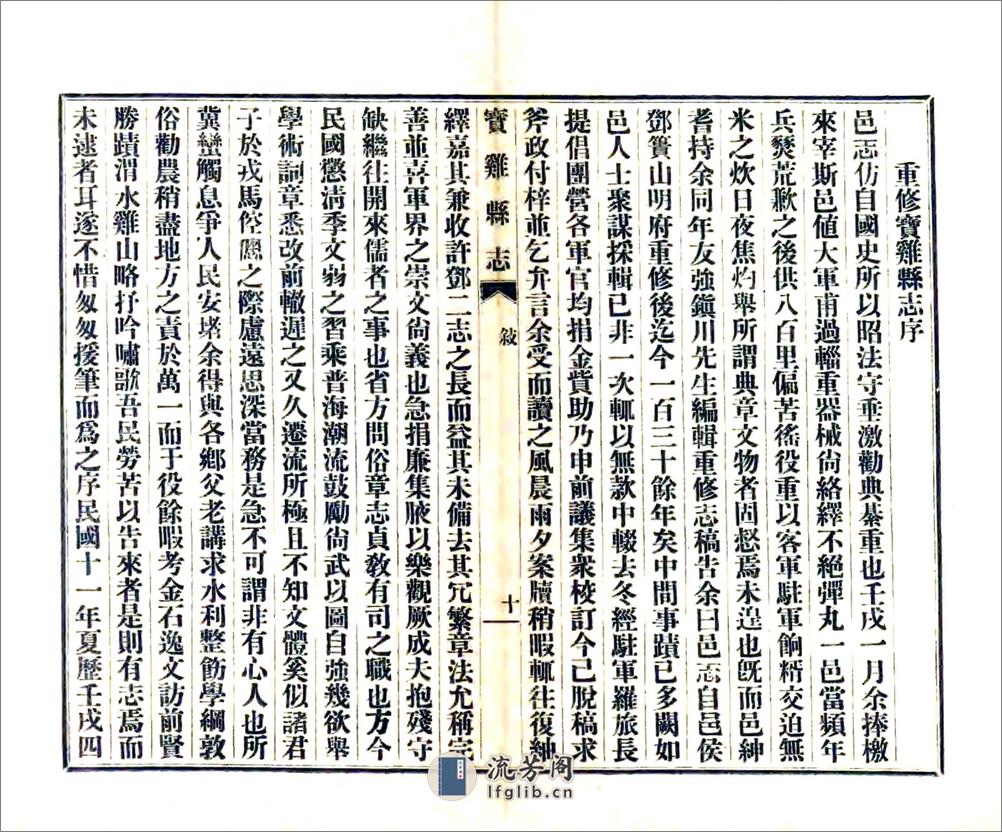 重修寶雞縣志序
邑志仿自國史所以昭法守垂激勸典綦重也壬戌一月余捧檄
來宰斯邑值大軍甫過輜重器械尙絡繹不絕彈丸一邑當頻年
兵燹荒歉之後供八百里偏苦徭役重以客軍駐軍餉糈交迫無
米之炊日夜焦灼舉所謂典章文物者固愸焉未遑也旣而邑紳
耆持余同年友強鎭川先生編輯重修志稿告余曰邑志自邑侯
鄧實山明府重修後迄今一百三十餘年矣中間事蹟已多闕如
邑人士聚謀採輯已非一次輒以無款中輟去冬經駐軍羅旅長
提倡團營各軍官均捐金貲助乃申前議集衆校訂今已脫稿求
斧政付梓並乞弁言余受而讀之風晨雨夕案牘稍暇輒往復紳
寶雞縣志
敍
十
繹嘉其兼收許鄧二志之長而益其未備去其冗繁章法允稱完
善並喜軍界之崇文尙義也急捐廉集腋以樂觀厥成夫抱殘守
缺繼往開來儒者之事也省方問俗章志貞敎有司之職也方今
民國懲淸季文弱之習乘普海潮流鼓勵尙武以圖自強幾欲舉
學術詞章悉改前轍遲之又久遷流所極且不知文體奚似諸君
子於戎馬倥傯之際慮遠思深當務是急不可謂非有心人也所
冀蠻觸息爭人民安堵余得與各鄕父老講求水利整飭學綱敦
俗勸農稍盡地方之責於萬一而于役餘暇考金石逸文訪前賢
勝蹟渭水雞山略抒吟嘯歌吾民勞苦以告來者是則有志焉而
未逮者耳遂不惜匆匆援筆而爲之序民國十一年夏歷壬戌四
流芳阁
lfglib.cn